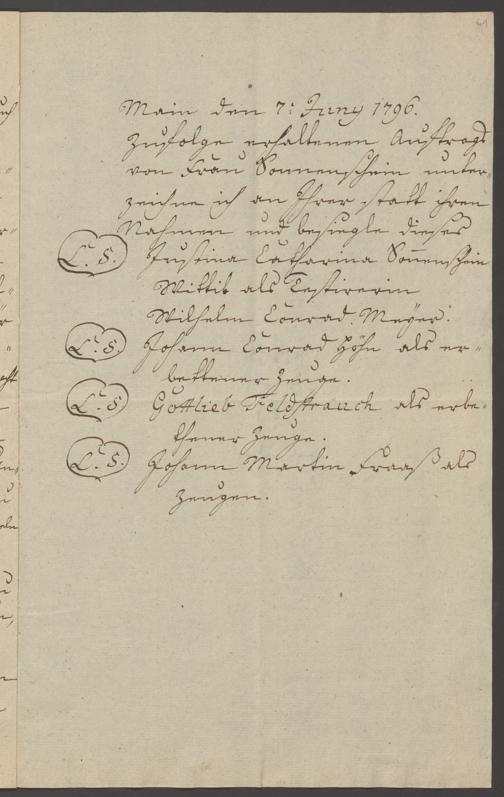 41
Main den 7: Juny 1796.
Zufolge erhaltenen Auftrags
von Frau Sonnenschein unter-
zeichne ich an Ihrer statt ihren
Nahmen und besiegle dieses
L. S. Justina Catharina Sonnenschein
Wittib als Testirerin
Wilhelm Conrad Meyer.
L. S. Johann Conrad Höhn als er-
bettener Zeuge.
L. S. Gottlieb Feldstrauch als erbe-
thener Zeuge.
L. S. Johann Martin Fraaß als
Zeugen.